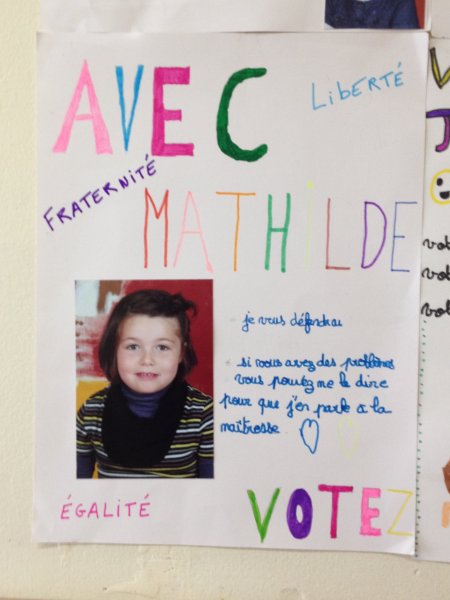 AVEC
LIBERTÉ
FRATERNITÉ
MATHILDE
je vous défendrai
si vous avez des problèmes
vous pouvez me le dire
pour que j'en parle a la
maîtresse
ÉGALITÉ
VOTEZ
V
J
vot
vot
vot